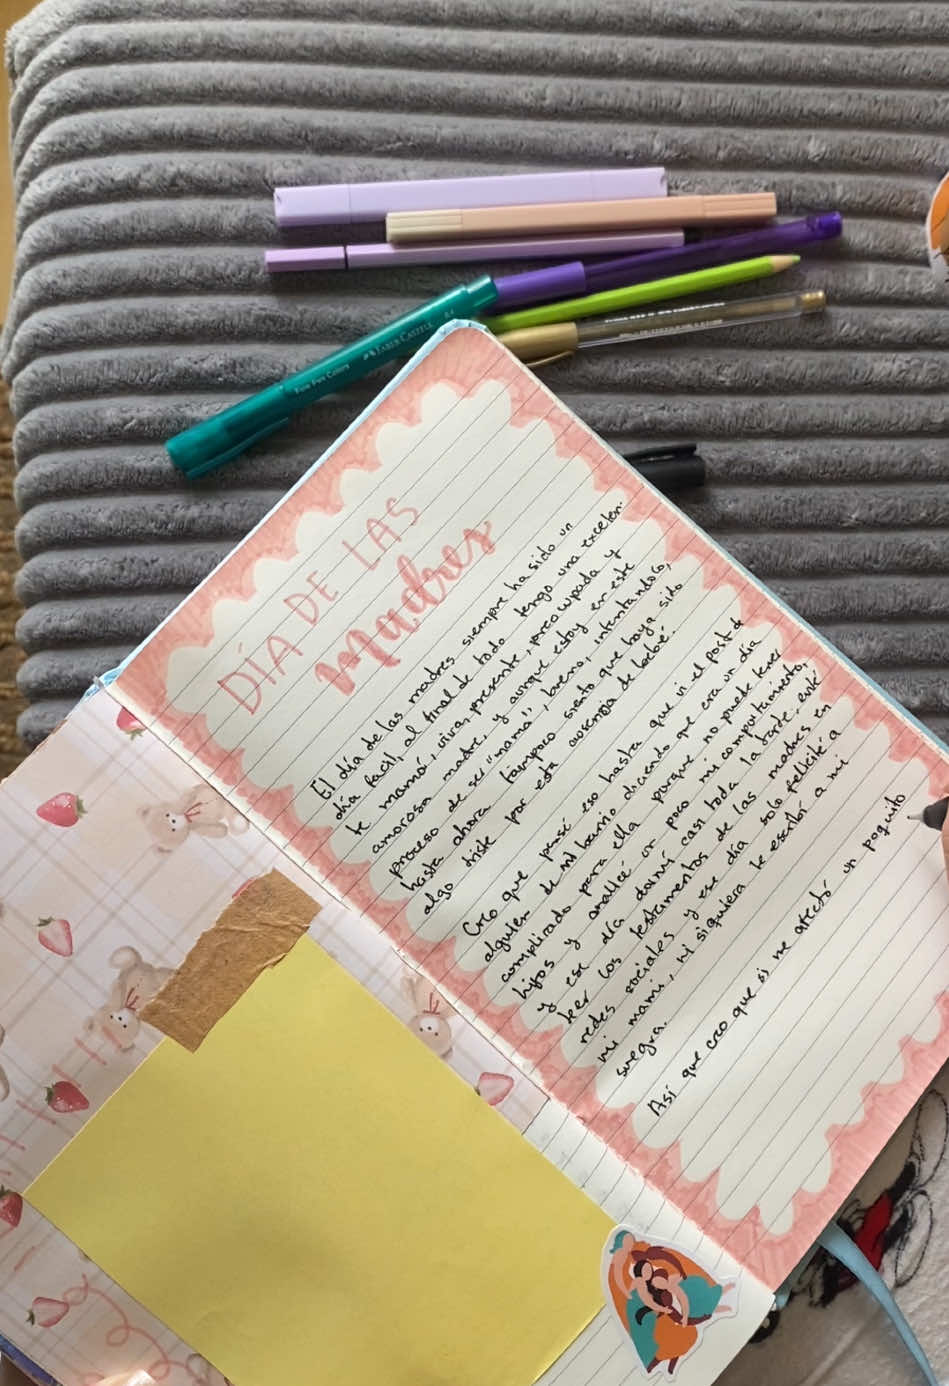 FABER-CASTELL
Fine Pen Colors
DÍA DE LAS
madres
El día de las madres siempre ha sido un
día facil, al final de todo tengo una excelen-
te mamá, viva, presente, preocupada y
amorosa madre, y aunque estoy en este
proceso de ser "mamá", bueno, intentandolo,
hasta ahora tampoco siento que haya sido
algo triste por esta ausencia de bebé.
Creo que pensé eso hasta que vi el post de
alguien de mi barrio diciendo que era un día
complicado para ella porque no puede tener
hijos y analicé un poco mi comportamiento,
y ese día dormí casi toda la tarde, evité
leer los testamentos de las madres en
redes sociales y ese día solo felicité a
mi mami, ni siquiera le escribí a mi
suegra.
Así que creo que si me afectó un poquito